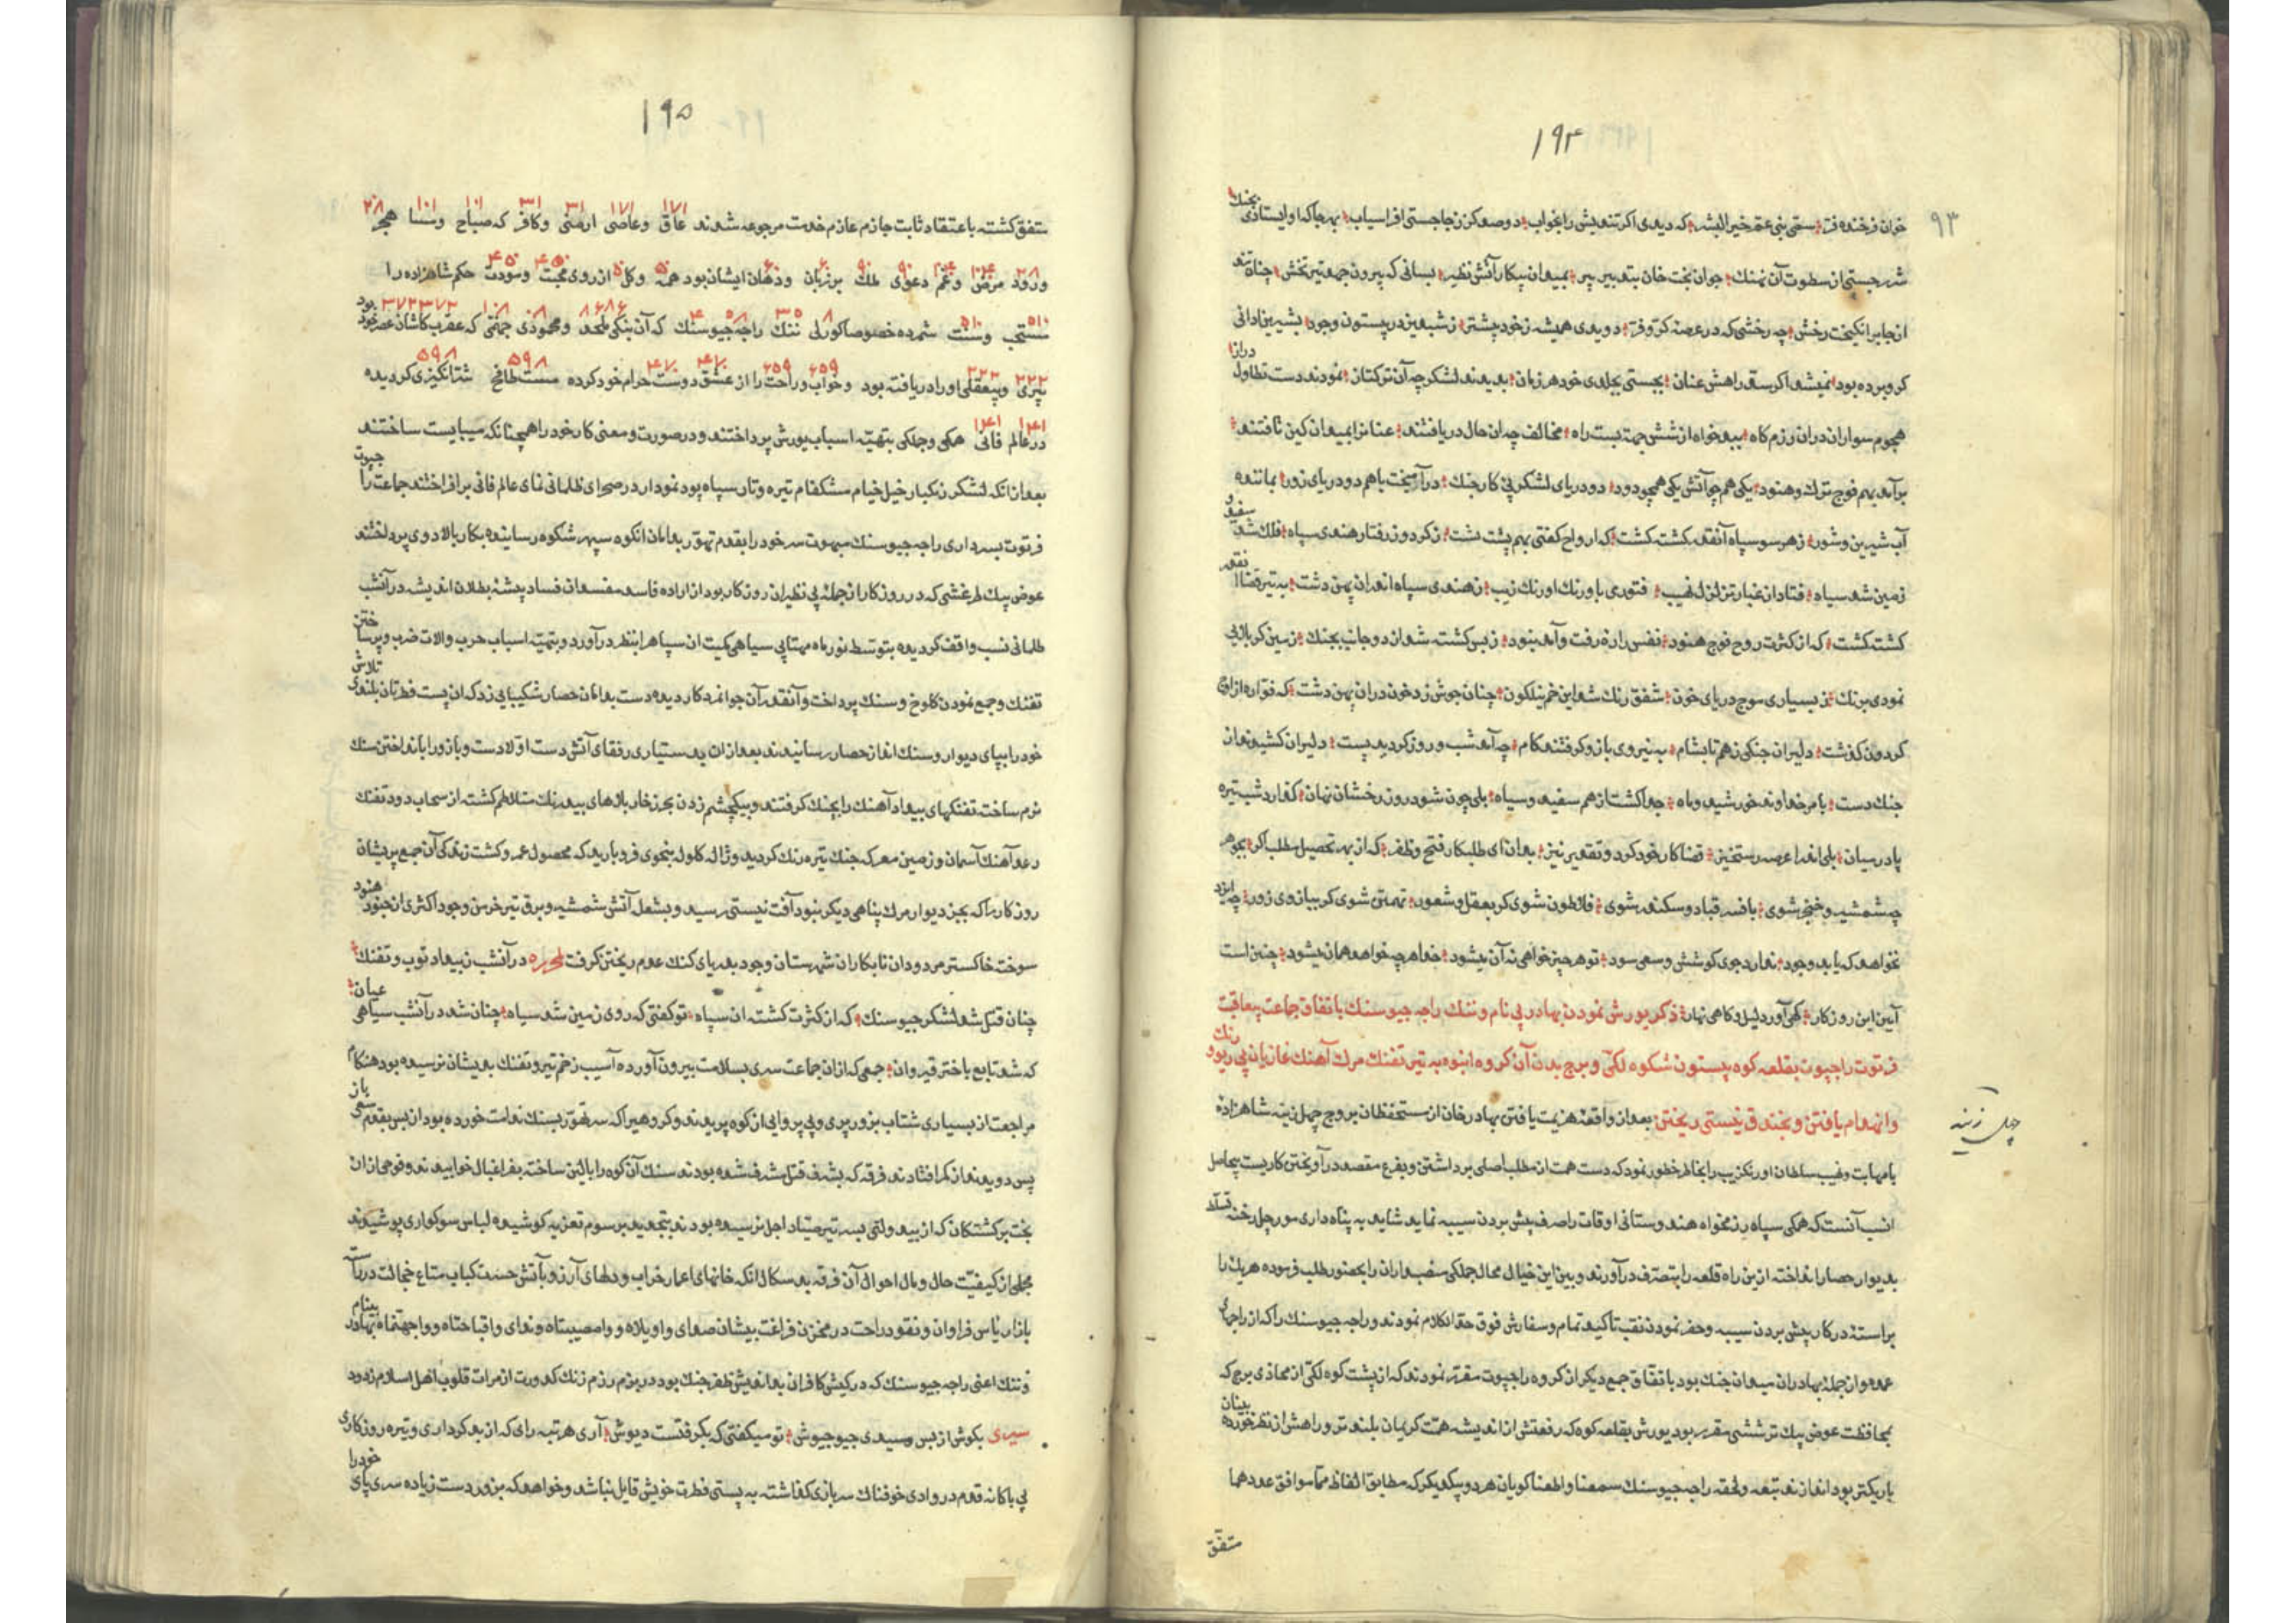 ۱۹۴
۹۳
خوان فرخنده فر سمّی بنی عمّ خیر البشر که دیدی اکر تندیش را بخواب دو صد کز ز جا جستی افراسیاب بهر جا که او ایستادی بجنك
شرر جستی از سطوت آن نهنك جوان بخت خان بتدبیر پیر بمیدان پیکار آتش نظیر بسانی که بیرون جهد تیر تخش چنان تند
از جا برانکیخت رخش چه رخشی که در عرصهٔ کرّ و فر دویدی همیشه ز خود پیشتر
کرو برده بود بجستی بجلدی خود هر زمان بدیدند لشکر چه آن ترکتاز نمودند دست تطاول دراز
هجوم سواران در ان رزم کاه ببد خواه از شش جهة بست راه مخالف چه ان حال دریافتند عنانرا بمیدان کین تافتند
برآمد بهم فوج ترك و هنود یکی همچو آتش یکی همچو دود دو دریای لشکر پی کار جنك درآمیخت باهم دو دریای زور بمانندهٔ
آب شیرین و شور ز هر سو سپاه آنقدر کشته کشت که ارواح کفتی بهم پشت پشت ز کردون رفتار هندی سپاه فلك شد سفید و
زمین شد سیاه فتاد از غبار تزلزل نهیب فتوری باورنك اورنك زیب ز هندی سپاه اندران پهن دشت به تیر قضا آنقدر
کشته کشت که از کثرت روح فوج هنود نفس را ره رفت و آمد نبود ز بس کشته شد از دو جانب بجنك زمین کربلائی
نمودی برنك ز بسیاری موج دریای خون شفق رنك شد این خم نیلکون چنان جوش زد خون در ان پهن دشت که فواره از اوج
کردون کذشت دلیران جنکی ز هم تا بشام به نیروی بازو کرفتند کام چه آمد شب و روز کردید پست دلیران کشیدند از
جنك دست بامر خداوند خورشید و ماه جدا کشت از هم سفید و سیاه بلی چون شود روز رخشان نهان کذارد شب تیره
پا در میان بلی اندرا عرصهٔ رستخیز قضا کار خود کرد و تقدیر نیز بدان ای طلبکار فتح و ظفر که از بهر تحصیل مطلب اکر بجوهر
چه شمشیر و خنجر شوی بافسر قباد و سکندر شوی فلاطون شوی کر بعقل و شعور تهمتن شوی کر ببازوی زور چه ایزد
نخواهد که یابد وجود ندارد جوی کوشش و سعی سود تو هر چیز خواهی نه آن میشود خدا هر چه خواهد همان میشود چنین است
آیین این روزکار کهی آورد لیل و کاهی نهار ذکر یورش نمودن بهادر بی نام و ننك راجه جیوسنك باتفاق جماعت بیعاقبت
فرتوت راجپوت بقلعه کوه بیستون شکوه لکی و برج بدن آن کروه انبوه به تیر تفنك مرك آهنك غازیان بی ریو و رنك
وانهدام یافتن و بخندق نیستی ریختن بعد از واقعهٔ هزیمت یافتن بهادر خان از مستحفظان بروج چهل زینه شاهزاده
چهل زینه
بامهابت و نهیب سلطان اورنکزیب را بخاطر خطور نمود که دست همت از مطلب اصلی برداشتن و بفرع مقصد درآویختن کاریست بیحاصل
انسب آنست که همکی سپاه رزمخواه هندوستانی اوقات را صرف پیش بردن سیبه نماید شاید به پناه داری مورچل رخنه تسلط
بدیوار حصار انداخته از ین راه قلعه را بتصرّف درآورند و بین این خیال محال جملکی سفیداران را بحضور طلب فرموده هریك را
براستهٔ در کار پیش بردن سیبه و حفر نمودن نقب تاکید تمام و سفارش فوق حدّ الکلام نمودند و راجه جیوسنك را که از راجهای
عمده و از جملهٔ بهادران میدان جنك بود باتفاق جمع دیکر از کروه راجپوت مقرّر نمودند که از پشت کوه لکی از محاذی برج که
بمحافظت عوض بیك ترششی مقرر بود یورش بقلعه کوه که رفعتش از اندیشه همّت کریمان بلندتر و راهش از نظر خورده بینان
باریکتر بود اندازند تبعه و لحقه راجه جیوسنك سمعنا و اطعنا کویان هر دو بیکدیکر که مطابق الفاظ مّا موافق عددها
متفق
۱۹۵
متفق کشته باعتقاد ثابت جازم عازم خدمت مرجوعه شدند عاق و عاصی ارمنی و کافر که صباح و مسا هجر
۱۷۱ ۱۷۱ ۳۱ ۳۱ ۱۰۱ ۱۰۱ ۲۰۸
ورود مرض و غم دعوی ملك بر زبان و ذهان ایشان بود همه و کل از روی محبت و مودت حکم شاهزاده را
مستحب و سنت شمرده خصوصا کورلی ننك راجه جیوسنك که آن بنکی ملحد و محمودی جهتی که عقرب کاشان عصر خود بود
۵۱۰ ۵۱۰
پیری و بیعقلی او را دریافته بود و خواب و راحت را از عشق دوست حرام خود کرده مست طافح شتانکیزی کردیده
۲۲۲ ۲۲۲ ۶۵۹ ۶۵۹ ۴۷۰ ۴۷۰ ۵۹۸ ۵۹۸
در عالم فانی همکی و جلکی بتهیّه اسباب یورش پرداختند و در صورت و معنی کار خود را همچنانکه میبایست ساختند
۱۴۱ ۱۴۱
بعد از انکه لشکر زنکبار خیل خیام مشکفام تیره و تار سپاه پود نمودار در صحرای ظلمانی نمای عالم فانی برافراختند جماعت راجپوت
فرتوت بسرداری راجه جیوسنك مبهوت سر خود را بقدم تهوّر بدامان انکوه سپهر شکوه رسانیده بکار بالادوی پرداختند
عوض بیك که در روزکار از جملهٔ بی نظیران روزکار بود از اراده فاسد مفسدان فساد پیشهٔ بطلان اندیشه در آنشب
ظلمانی نسب واقف کردیده بتوسط نور ماه مهتابی سیاهی کمیت ان سپاهرا بنظر درآورد و بتهیّه اسباب حرب و الات ضرب و پرساختن
تفنك و جمع نمودن کلوخ و سنك پرداخت و آنقدر آن جوانمرد کار دیده دست بدامان حصار شکیبایی زد که ان پست فطرتان بلندی تلاش
خود را بپای دیوار و سنك انداز حصار رسانیدند بعد از ان بدستیاری رفقای آتش دست اولا دست و بازو را بانداختن سنك
نرم ساخته تفنکهای بیداد آهنك را بچنك کرفتند و بیکچشم زدن بحر زخار بلاهای بیدرنك متلاطم کشته از سحاب دود تفنك
رعد آهنك آسمان و زمین معرکه جنك تیره رنك کردید و ژاله کلوله بنحوی فرو بارید که محصول عمر و کشت زندکی آن جمع پریشان
روزکار را که بجز دیوار مرك پناهی دیکر نبود آفت نیستی رسید و بشعل آتش شمشیر و برق تیر خرمن وجود اکثری از جنود هنود
سوخت خاکستر مردودان نابکار از شهرستان وجود بدریای کنك عدم ریختن کرفت لمحرره در آنشب ز بیداد توپ و تفنك
چنان قتل شد لشکر جیوسنك که از کثرت کشته ان سپاه تو کفتی که روی زمین شد سیاه چنان شد در آنشب سیاهی عیان
که شد تابع باختر قیروان جمعی که ازان جماعت سری بسلامت بیرون آورده آسیب زخم تیر و تفنك بدیشان نرسیده بود هنکام
مراجعت از بسیاری شتاب بزور پری و بی پروایی از کوه پریدند و کروهیرا که سر تهوّر بسنك ندامت خورده بود از بس بقدم سعی باز
پس دویدند از کمر افتادند فرقه که بشرف قتل مشرف شده بودند سنك آن کوه را بالین ساخته بفراغبال خوابیدند و فوجی از ان
بخت برکشتکان که از بیدولتی بسر تیر صیّاد اجل نرسیده بودند بتجدید برسوم تعزیه کوشیده لباس سوکواری پوشیدند
مجملی از کیفیّت حال و مآل احوال آن فرقه بدسکال انکه خانهای اعمار خراب و دلهای آرزو بآتش حسرت کباب متاع خجالت در راسته
بازار یاس فراوان و نقود راحت در مخزن فراغت بیشان صدای واویلاه و وامصیبتاه و ندای واقباحتاه و واجهنماه بهادر بینام
و ننك اعنی راجه جیوسنك که در کیش کافران بداندیش ظفر جنك بود در بزم رزم زنك کدورت از مرات قلوب اهل اسلام زدود
سیدی بکوش از بس رسیدی جیو جیوش تو میکفتی که بکرفتست دیوش آری هر تبه رای که از بدکرداری و تیره روزکاری
بی باکانه قدم در وادی خوفناك سربازی کذاشته به پستی فطرت خویش قایل نباشد و خواهد که بزور دست زیاده سری پای خود را